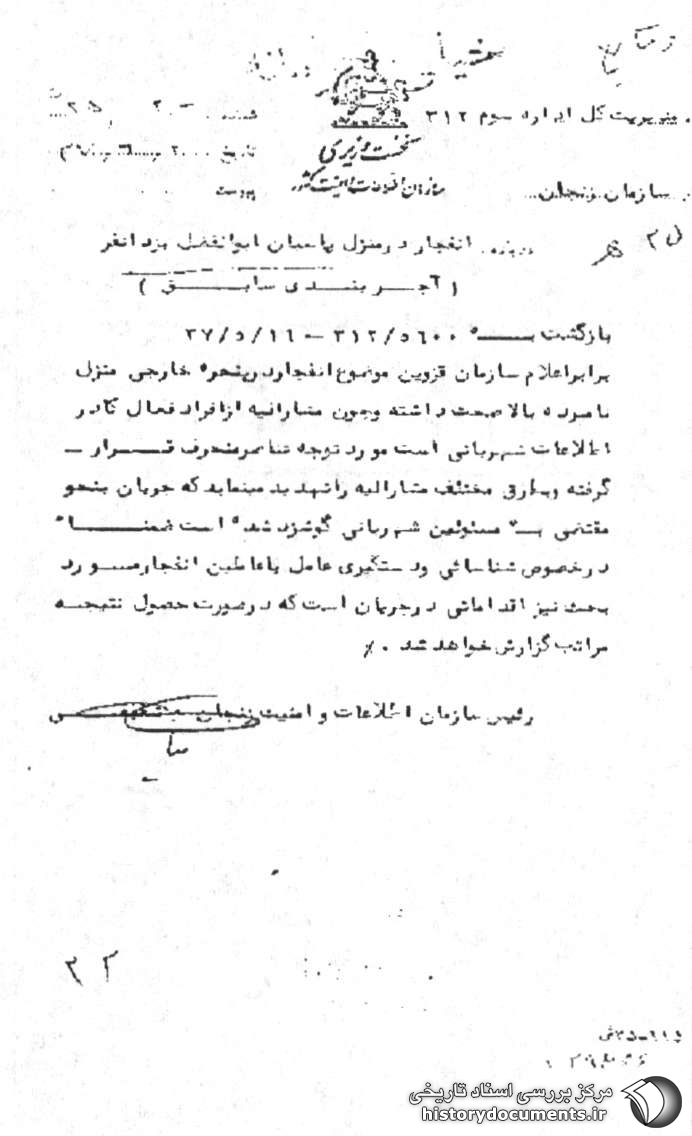 مدیریت کل اداره سوم ۳۱۲
سازمان زنجان
نخست وزیری
سازمان اطلاعات و امنیت کشور
شماره
تاریخ
پیوست
درباره انفجار در منزل پاسبان ابوالفضل یزدانفر
( آجر بندی سابق )
بازگشت به ۳۱۲/۵۶۰۰ – ۳۷/۵/۱۶
برابر اعلام سازمان قزوین موضوع انفجار در پنجره خارجی منزل
نامبرده بالا صحت داشته و چون مشارالیه از افراد فعال کادر
اطلاعات شهربانی است مورد توجه عناصر منحرف قرار –
گرفته و بطرق مختلف مشارالیه را تهدید مینماید که جریان بنحو
مقتضی به مسئولین شهربانی گوشزد شده است ضمنا"
در خصوص شناسائی و دستگیری عامل یا عاملین انفجار مورد
بحث نیز اقداماتی در جریان است که در صورت حصول نتیجه
مراتب گزارش خواهد شد . ٪
رئیس سازمان اطلاعات و امنیت زنجان
۲۳
مرکز بررسی اسناد تاریخی
historydocuments.ir